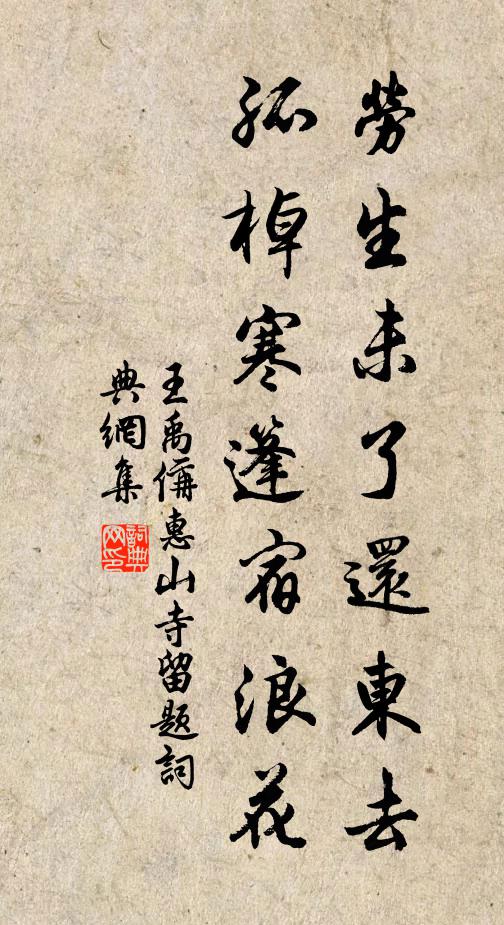 勞生未了還東去
孤棹寒篷宿浪花
王禹偁惠山寺留題詞
典網集
詞典
网印